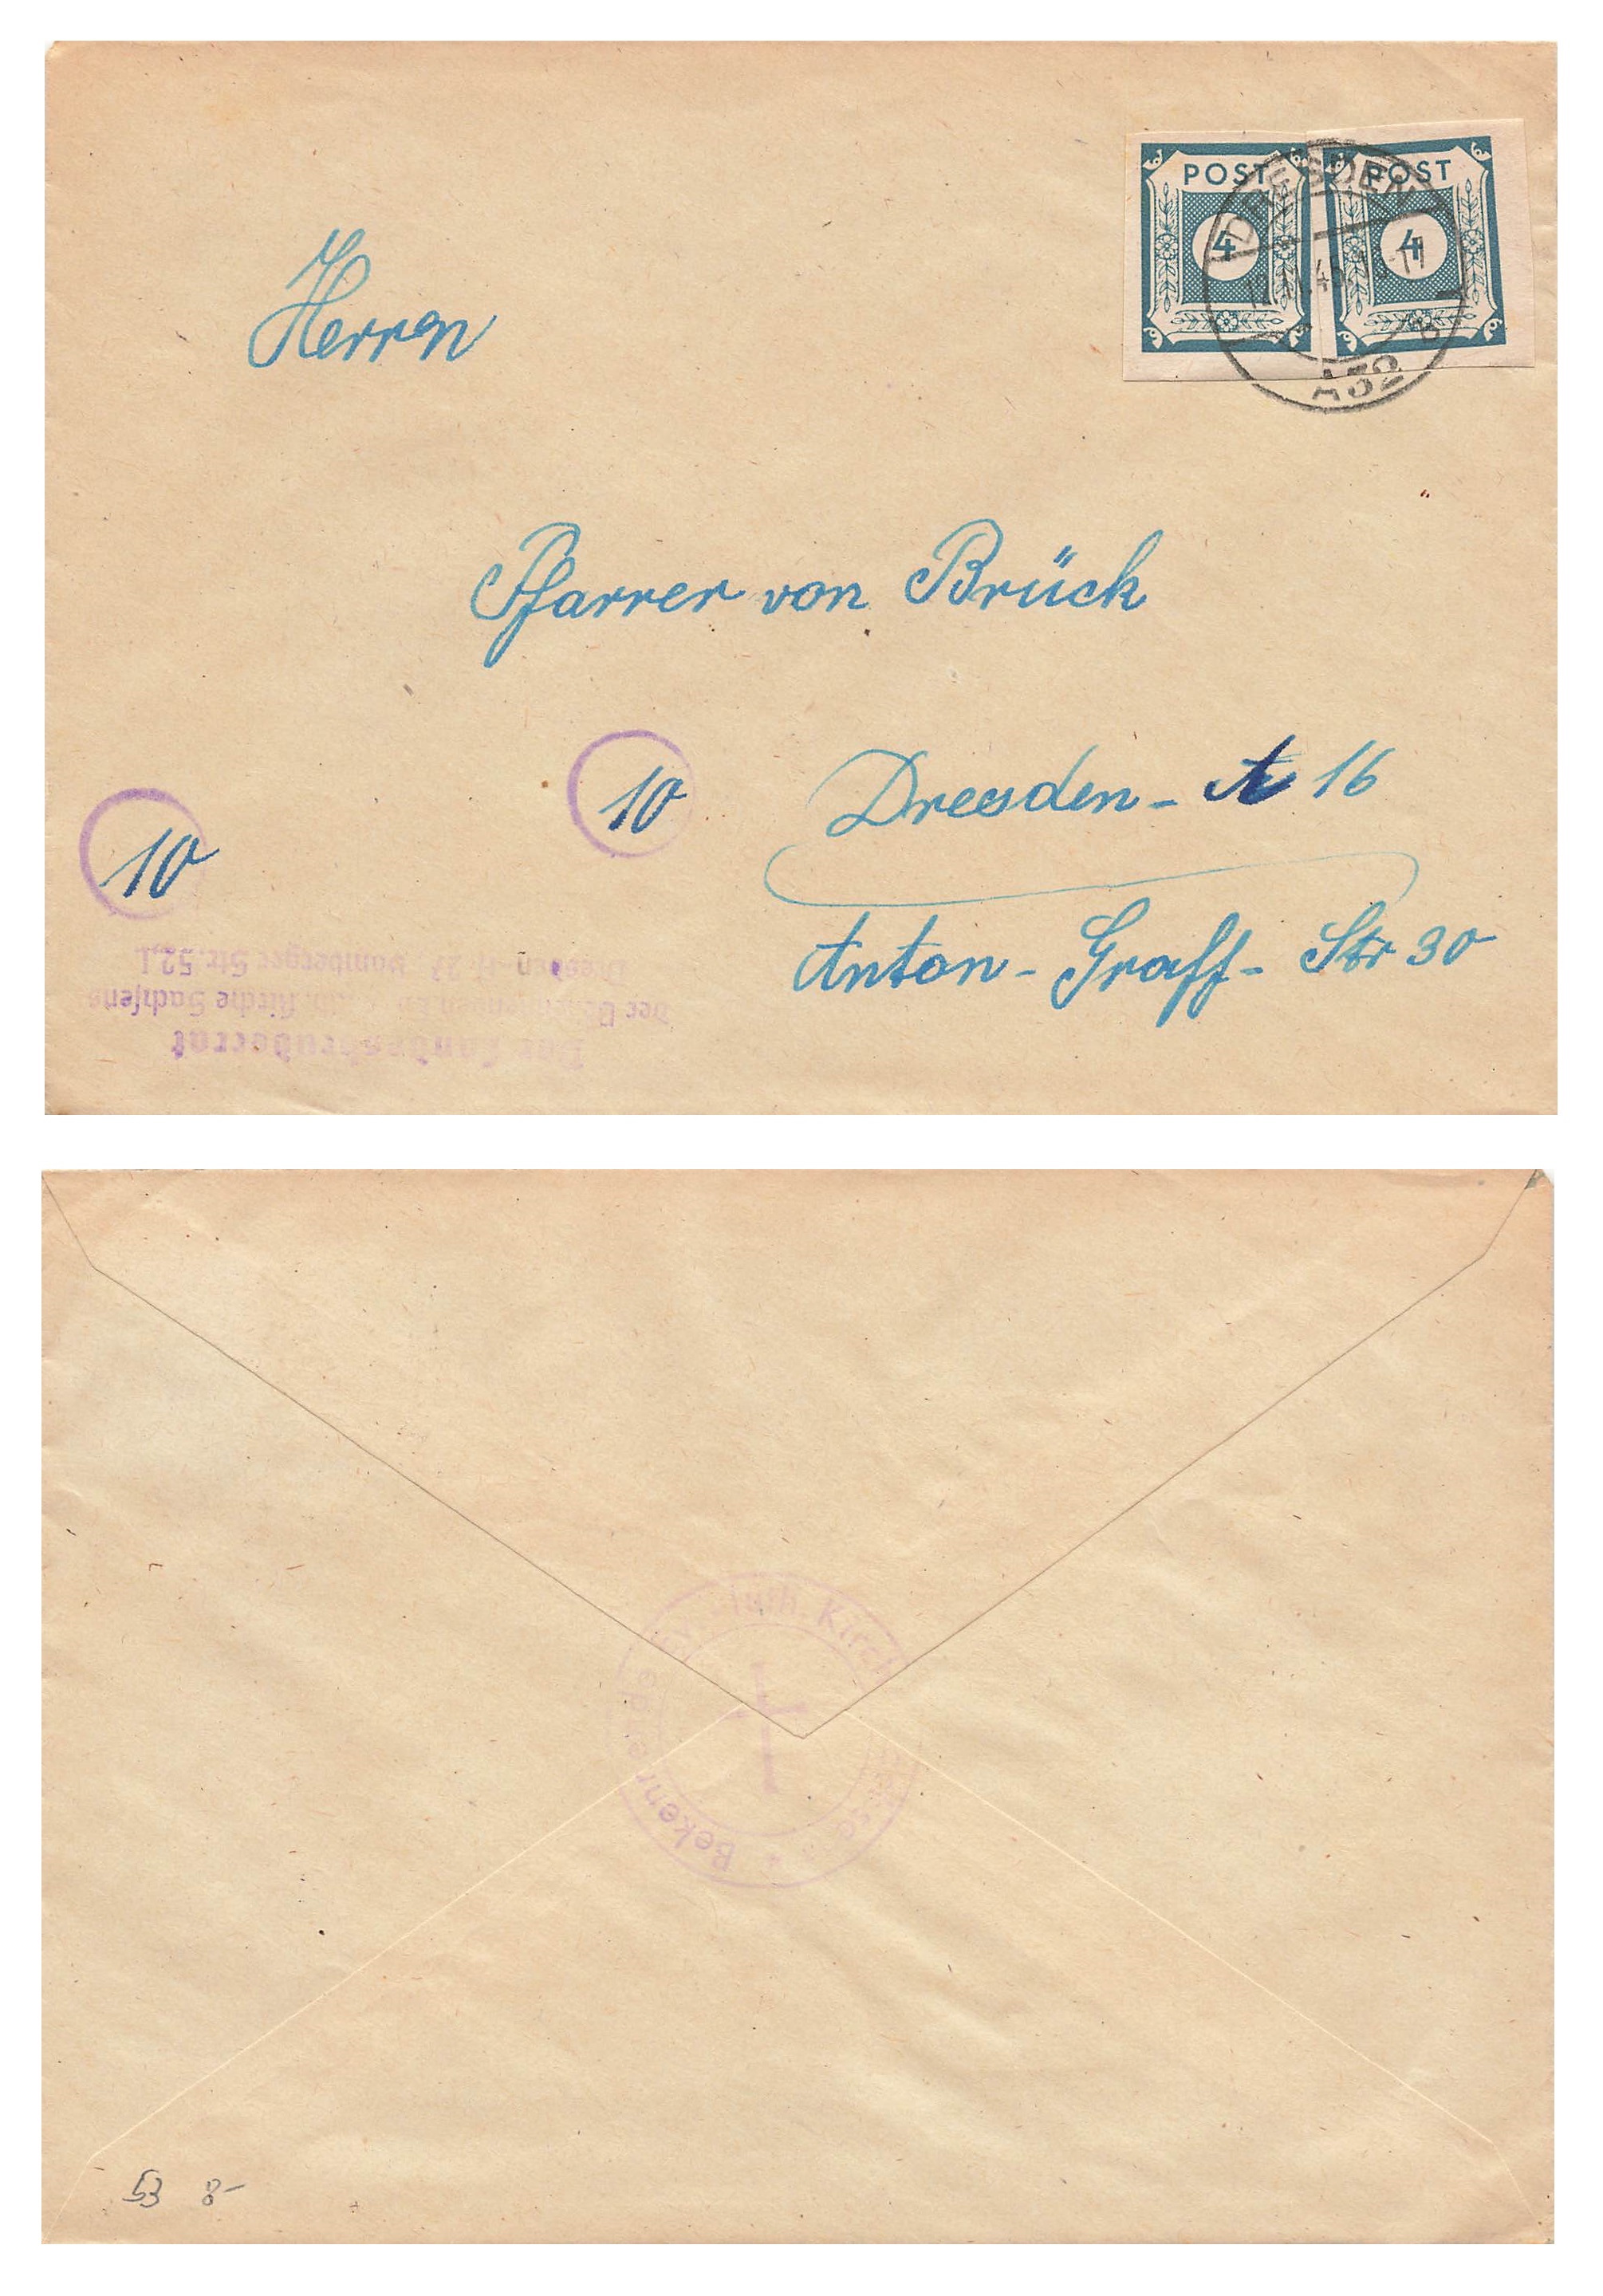 POST POST
4 4
DRESDEN
A32
B
Herrn
Pfarrer von Brück
10 10
Dresden - A 16
Anton - Graff - Str 30
Der Landesbruderrat
der Kirche Sachsens
Dresden A 27 Bamberger Str. 52, I.
Ev. luth. Kirch
Beken
53 8-